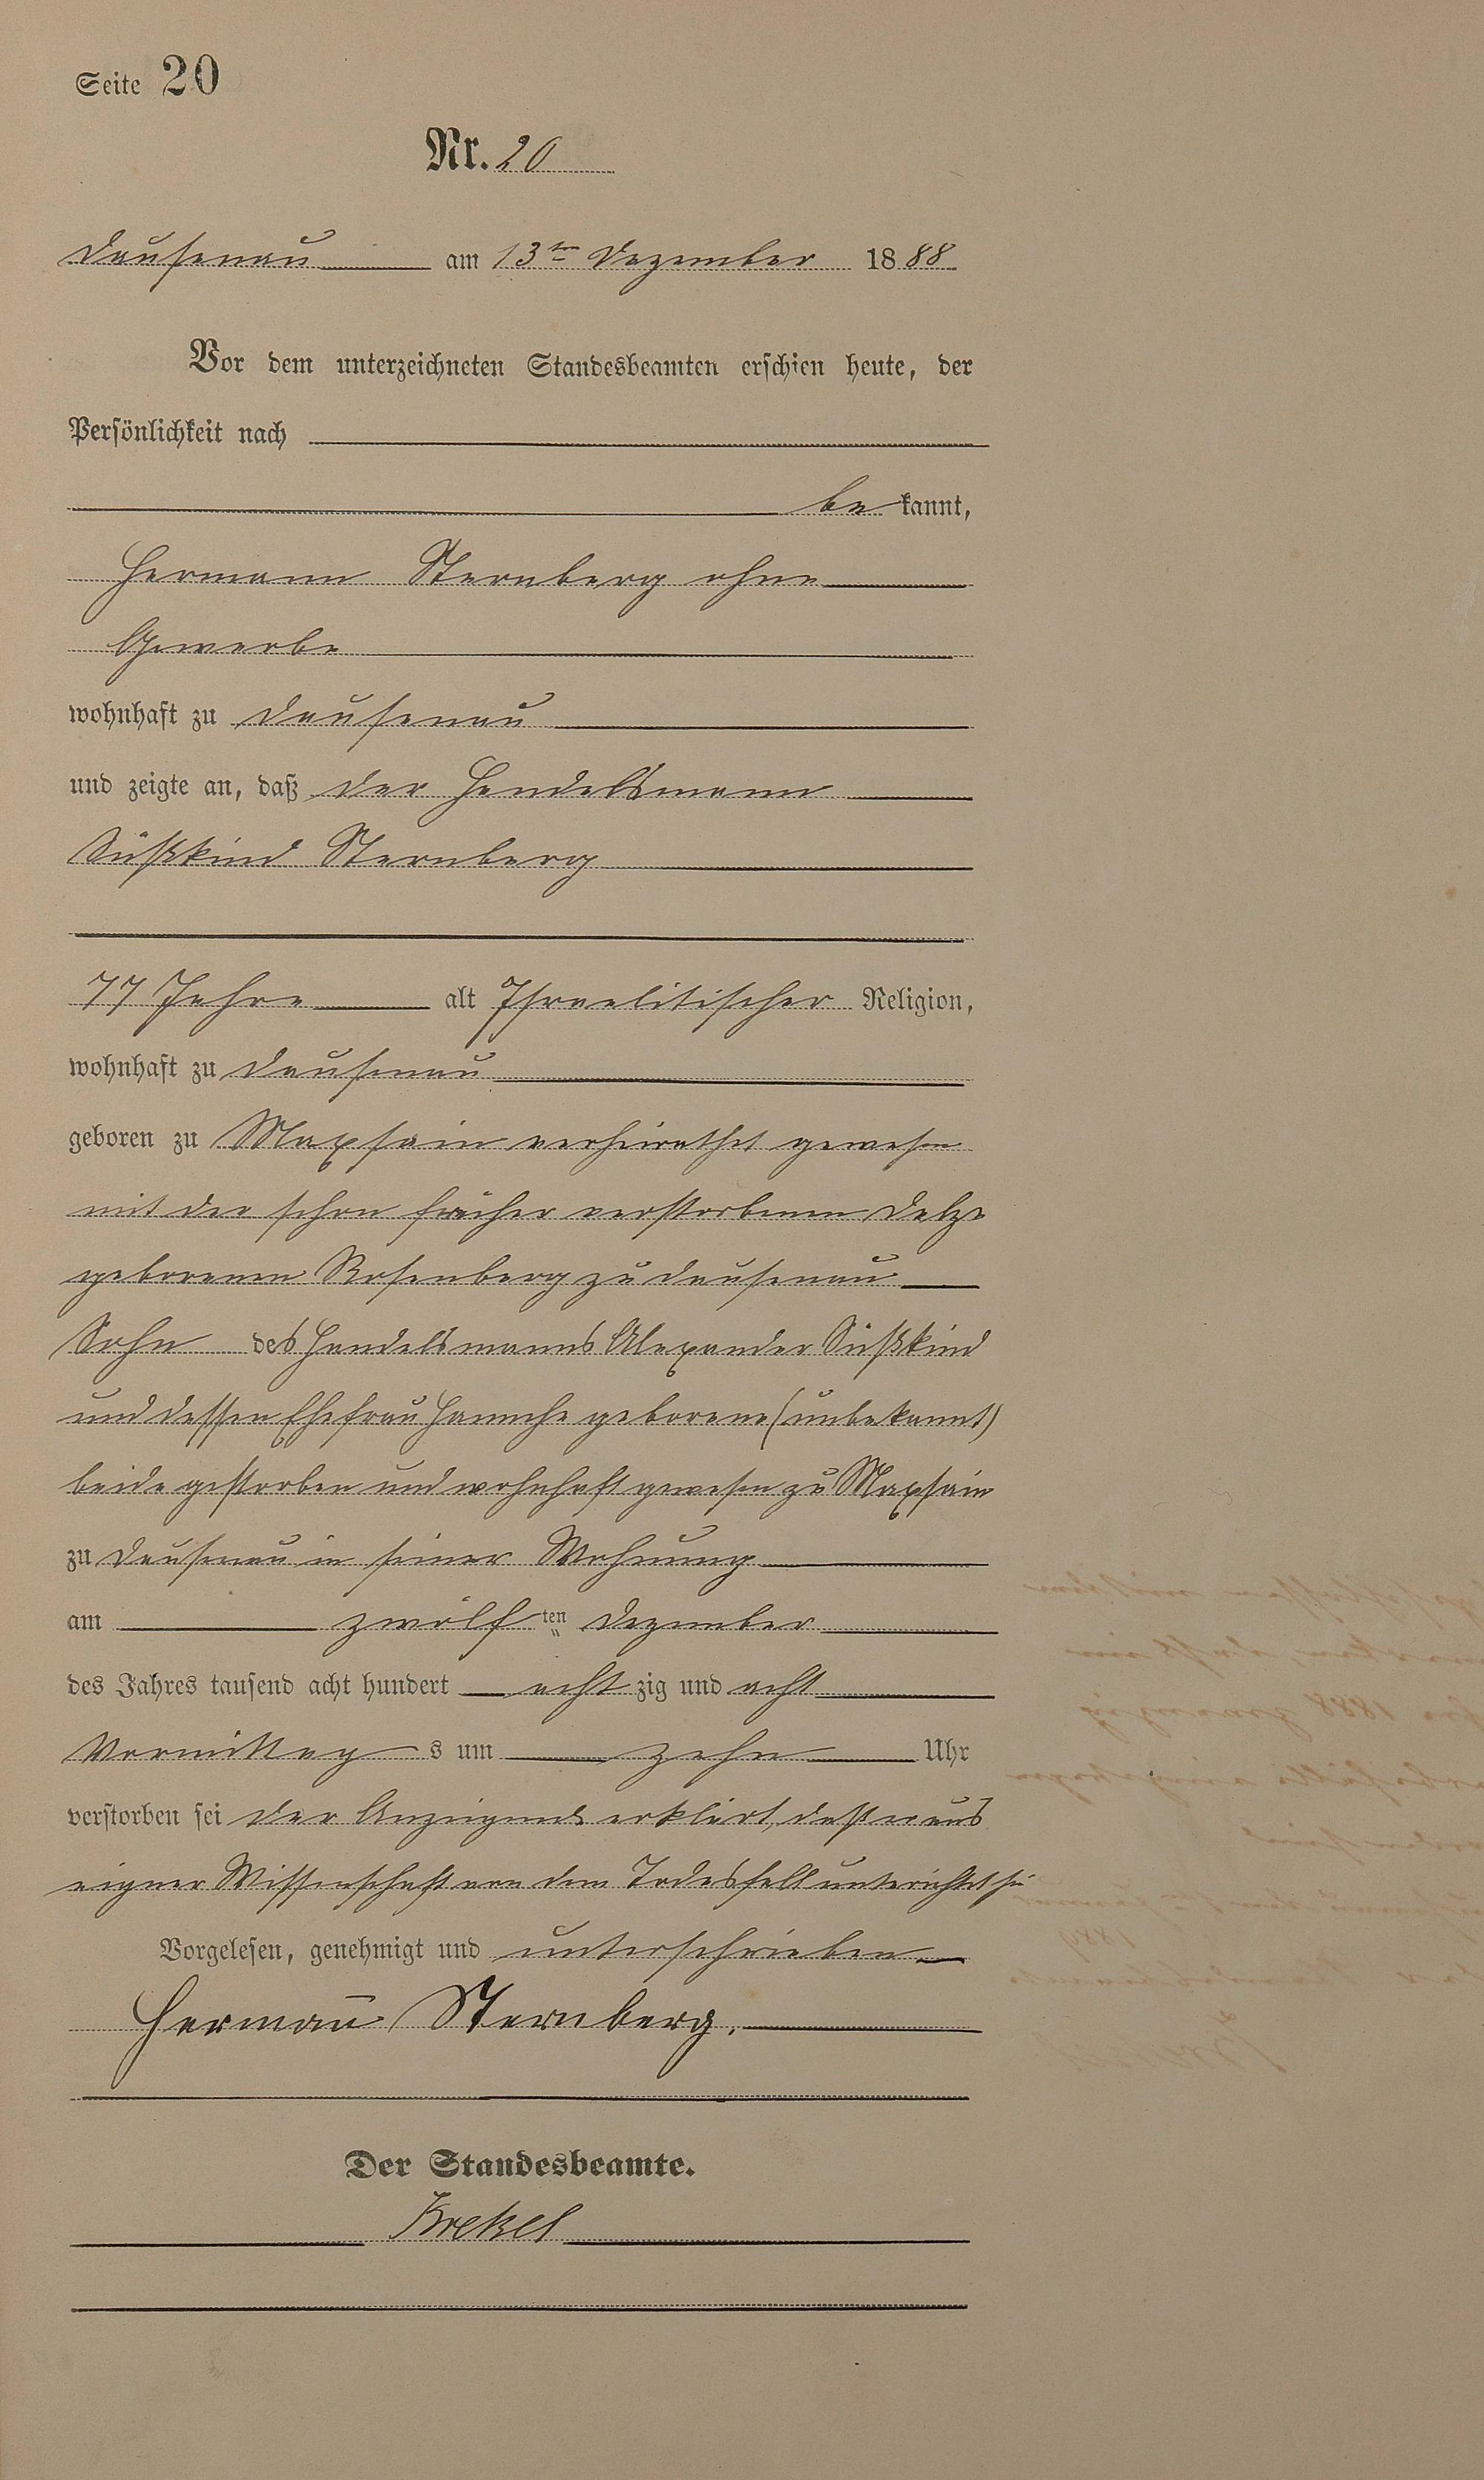 Seite 20
Nr. 20
Dausenau am 13ten Dezember 1888
Vor dem unterzeichneten Standesbeamten erschien heute, der
Persönlichkeit nach
be kannt,
Hermann Sternberg ohne
Gewerbe
wohnhaft zu Dausenau
und zeigte an, daß der Handelsmann
Süßkind Sternberg
77 Jahre alt Israelitischer Religion,
wohnhaft zu Dausenau
geboren zu Maxsain verheirathet gewesen
mit der schon früher verstorbenen
geborenen Rosenberg zu Dausenau
Sohn des Handelsmanns Alexander Süßkind
und dessen Ehefrau Hannche geborene (unbekannt)
beide gestorben und wohnhaft gewesen zu Maxsain
zu Dausenau in seiner Wohnung
am zwölf ten Dezember
des Jahres tausend acht hundert acht zig und acht
Vormittag s um zehn Uhr
verstorben sei Der Anzeigende erklärt, daß er aus
eigner Wissenschaft von dem Todesfall unterichtet sei
Vorgelesen, genehmigt und unterschrieben
Hermañ Sternberg.
Der Standesbeamte.
Krekel